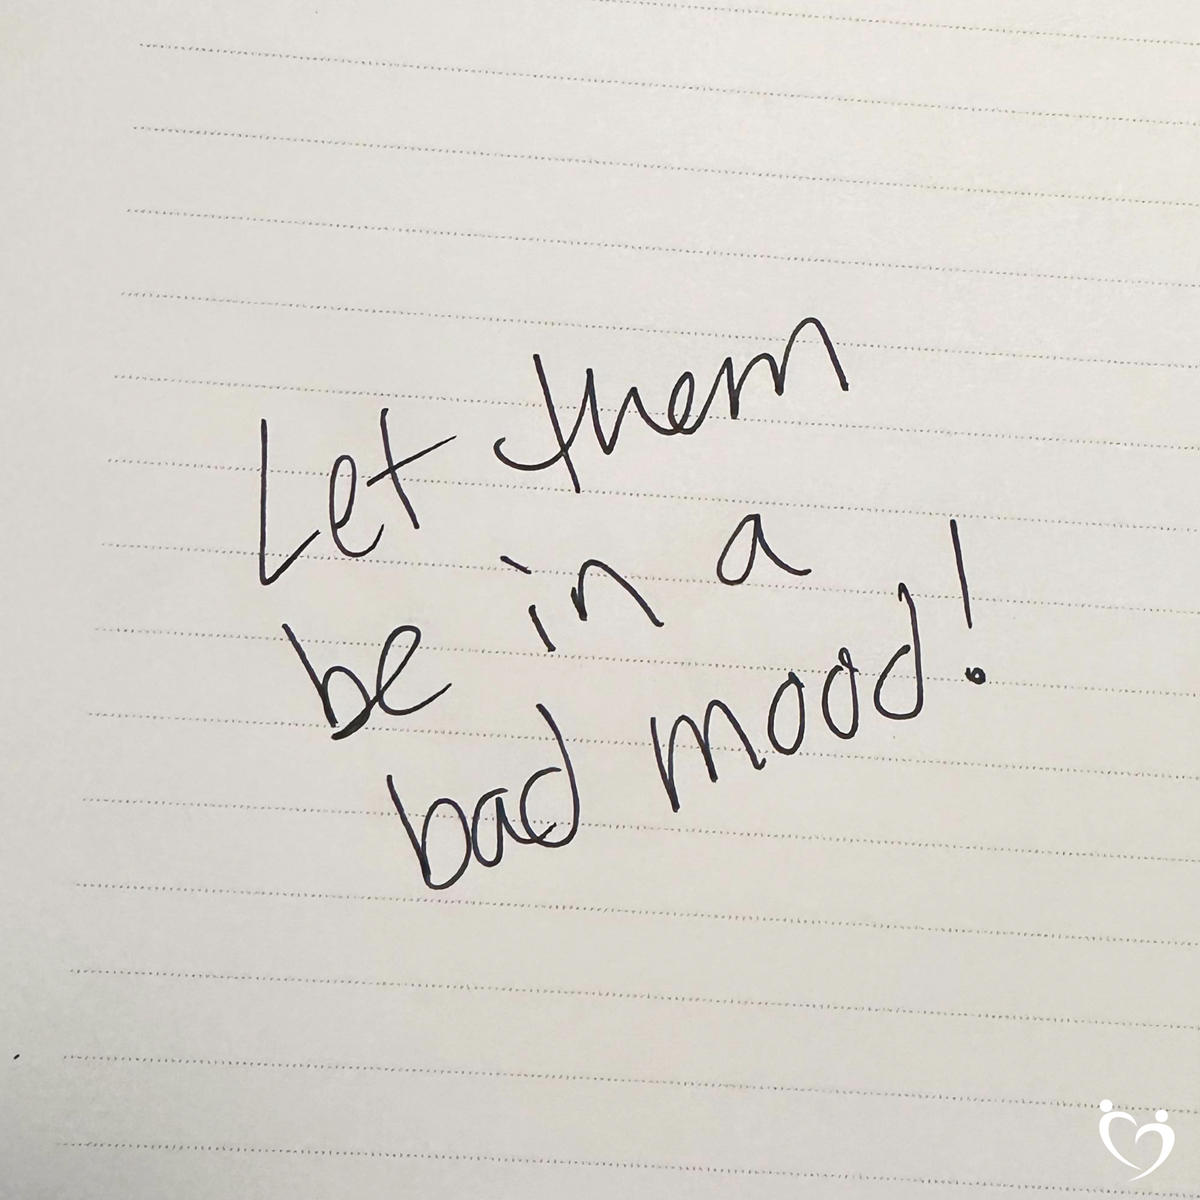 Let them
be in a
bad mood!